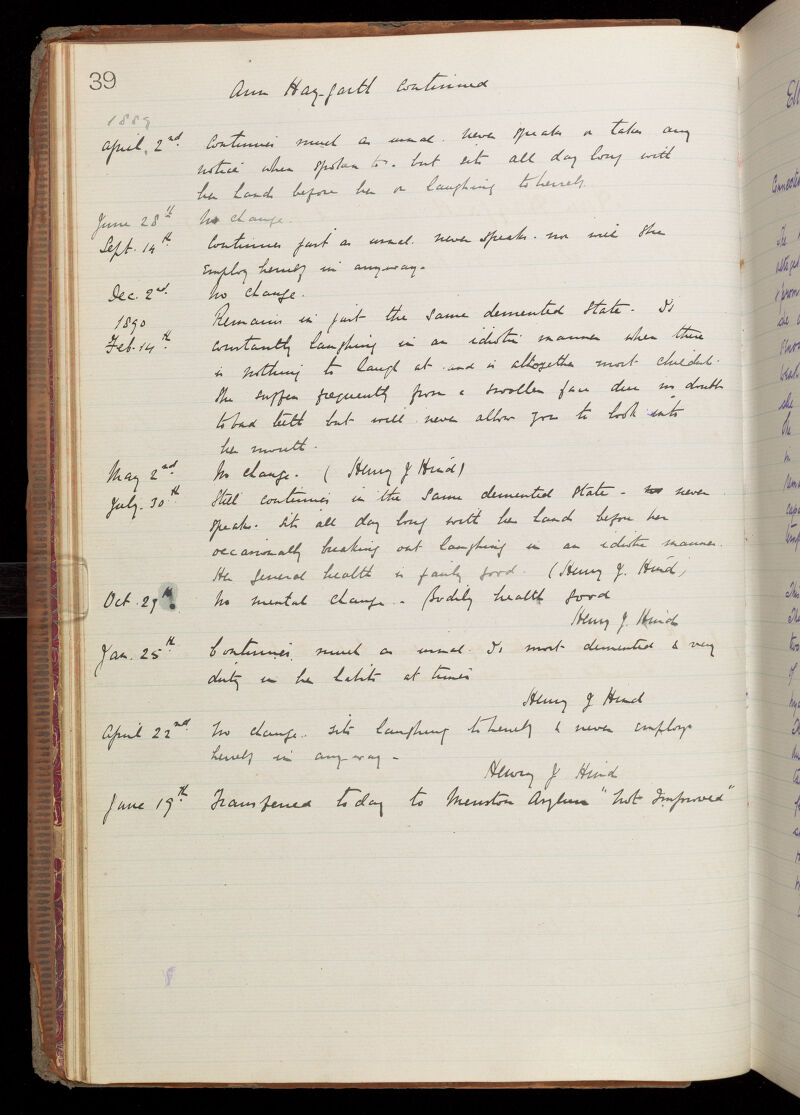 39
Ann Haygarth continued
1889
April. 2nd. Continues much as usual. never speaks or takes any
notice when spoken to. but sits all day long with
her hands before her or laughing to herself.
June 28th No change.
Sept. 14th. Continues just as usual. never speaks. nor will she
employ herself in anyway.
Dec. 2nd. No change.
1890 Remains in just the same demented state. Is
Feb. 14th. constantly laughing in an idiotic manner when there
is nothing to laugh at and is altogether most childish.
She suffers frequently from a swollen face due no doubt
to bad teeth but will never allow you to look into
her mouth.
May 2nd No change. (Henry J Hind)
July. 30th Still continues in the same demented state. never
speaks. sits all day long with her hands before her
occasionally breaking out laughing in an idiotic manner.
Her general health is fairly good. (Henry J. Hind)
Oct. 29th. No mental change. Bodily health good
Henry J. Hind
Jan. 25th Continues much as usual. Is most demented & very
dirty in her habits at times
Henry J Hind
April 22nd No change. sits laughing to herself & never employs
herself in anyway.
Henry J Hind
June 19th. Transferred today to Menston Asylum "Not Improved"